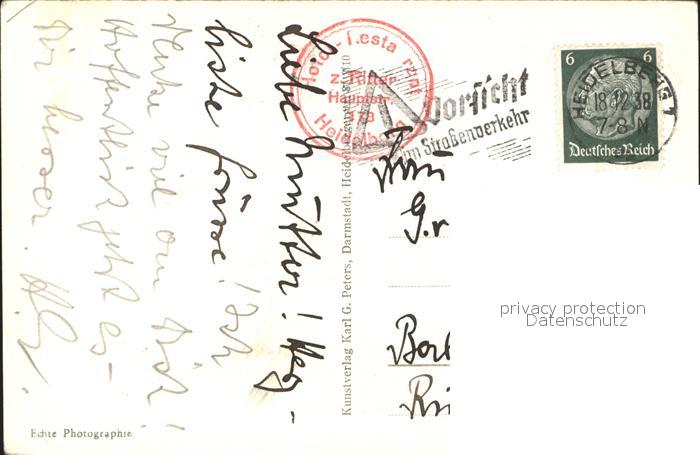 Liebe Mutter! Herz-
liche Grüsse! Ich
denke viel an Dich!
Hoffentlich geht es
Dir besser.
Echte Photographie
Kunstverlag Karl G. Peters, Darmstadt, Heidelberg
Hotel-Restaurant
z. Ritter
Hauptstr.
178
Heidelberg
Vorsicht
im Straßenverkehr
Frau
G.
HEIDELBERG 1
18.12.38
7-8 N
6 6
Deutsches Reich
privacy protection
Datenschutz